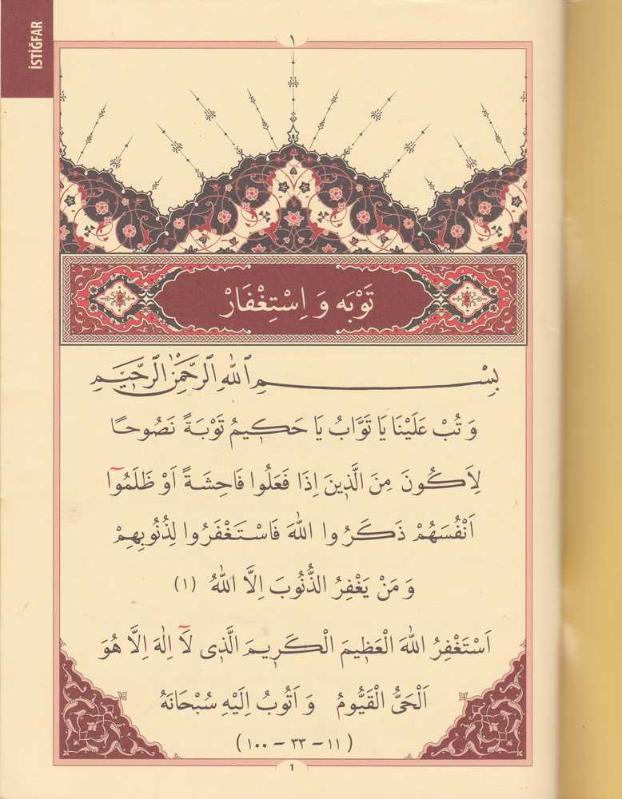 İSTİĞFAR
١
تَوْبَه وَ اِسْتِغْفَارْ
بِسْمِ اللهِ الرَّحْمٰنِ الرَّحٖيمِ
وَ تُبْ عَلَيْنَا يَا تَوَّابُ يَا حَكٖيمُ تَوْبَةً نَصُوحًا
لِاَكُونَ مِنَ الَّذٖينَ اِذَا فَعَلُوا فَاحِشَةً اَوْ ظَلَمُٓوا
اَنْفُسَهُمْ ذَكَرُوا اللهَ فَاسْتَغْفَرُوا لِذُنُوبِهِمْ
وَ مَنْ يَغْفِرُ الذُّنُوبَ اِلَّا اللهُ (١)
اَسْتَغْفِرُ اللهَ الْعَظٖيمَ الْكَرٖيمَ الَّذٖى لَٓا اِلٰهَ اِلَّا هُوَ
اَلْحَىُّ الْقَيُّومُ وَ اَتُوبُ اِلَيْهِ سُبْحَانَهُ
(١١ – ٣٣ – ١٠٠)
1